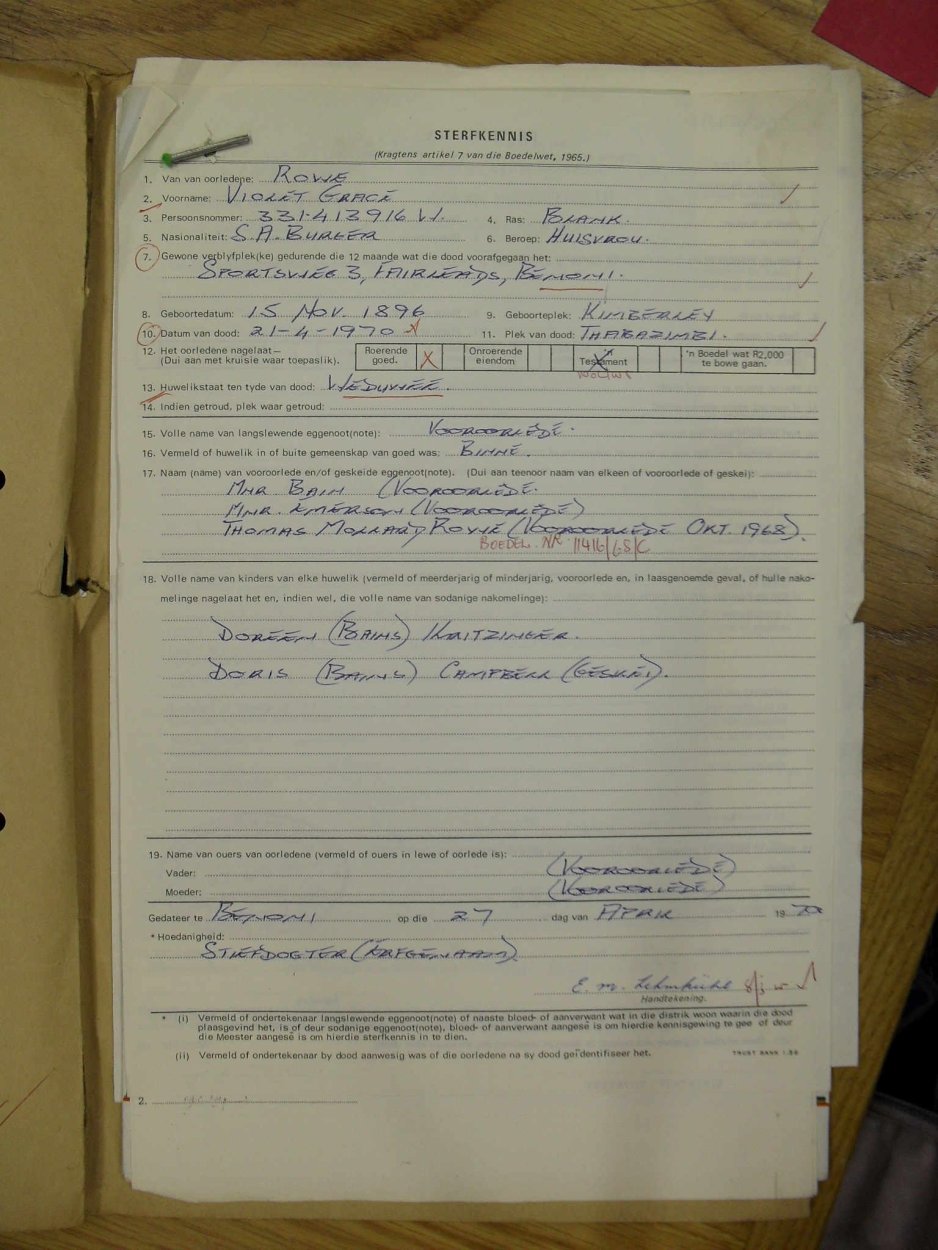 STERFKENNIS
(Kragtens artikel 7 van die Boedelwet, 1965.)
1. Van van oorledene: ROWE
2. Voorname: VIOLET GRACE
3. Persoonsnommer: 331-413916 W. 4. Ras: BLANK.
5. Nasionaliteit: S.A. BURGER 6. Beroep: HUISVROU.
7. Gewone verblyfplek(ke) gedurende die 12 maande wat die dood voorafgegaan het:
SPORTSWEG 3, FAIRLEADS, BENONI.
8. Geboortedatum: 15 NOV. 1896 9. Geboorteplek: KIMBERLEY
10. Datum van dood: 21-4-1970 11. Plek van dood: THABAZIMBI.
12. Het oorledene nagelaat— (Dui aan met kruisie waar toepaslik). Roerende goed. X Onroerende eiendom Testament 'n Boedel wat R2,000 te bowe gaan.
13. Huwelikstaat ten tyde van dood: WEDUWEE.
14. Indien getroud, plek waar getroud:
15. Volle name van langslewende eggenoot(note): VOOROORLEDE.
16. Vermeld of huwelik in of buite gemeenskap van goed was: BINNE.
17. Naam (name) van vooroorlede en/of geskeide eggenoot(note). (Dui aan teenoor naam van elkeen of vooroorlede of geskei):
MNR BAIN (VOOROORLEDE.
MNR. EMERSON (VOOROORLEDE)
THOMAS MOLLARD ROWE (VOOROORLEDE OKT. 1968).
BOEDEL NR 11416/68/C
18. Volle name van kinders van elke huwelik (vermeld of meerderjarig of minderjarig, vooroorlede en, in laasgenoemde geval, of hulle nako-
melinge nagelaat het en, indien wel, die volle name van sodanige nakomelinge):
DOREEN (BAINS) KRITZINGER.
DORIS (BAINS) CAMPBELL (GESKEI).
19. Name van ouers van oorledene (vermeld of ouers in lewe of oorlede is):
Vader: (VOOROORLEDE)
Moeder: (VOOROORLEDE)
Gedateer te BENONI op die 27 dag van APRIL 1970
* Hoedanigheid:
STIEFDOGTER (ERFGENAAM)
E. M. Lehmkühl
Handtekening.
* (i) Vermeld of ondertekenaar langslewende eggenoot(note) of naaste bloed- of aanverwant wat in die distrik woon waarin die dood
plaasgevind het, is of deur sodanige eggenoot(note), bloed- of aanverwant aangesê is om hierdie kennisgewing te gee of deur
die Meester aangesê is om hierdie sterfkennis in te dien.
(ii) Vermeld of ondertekenaar by dood aanwesig was of die oorledene na sy dood geïdentifiseer het.
TRUST BANK 1.50
2.